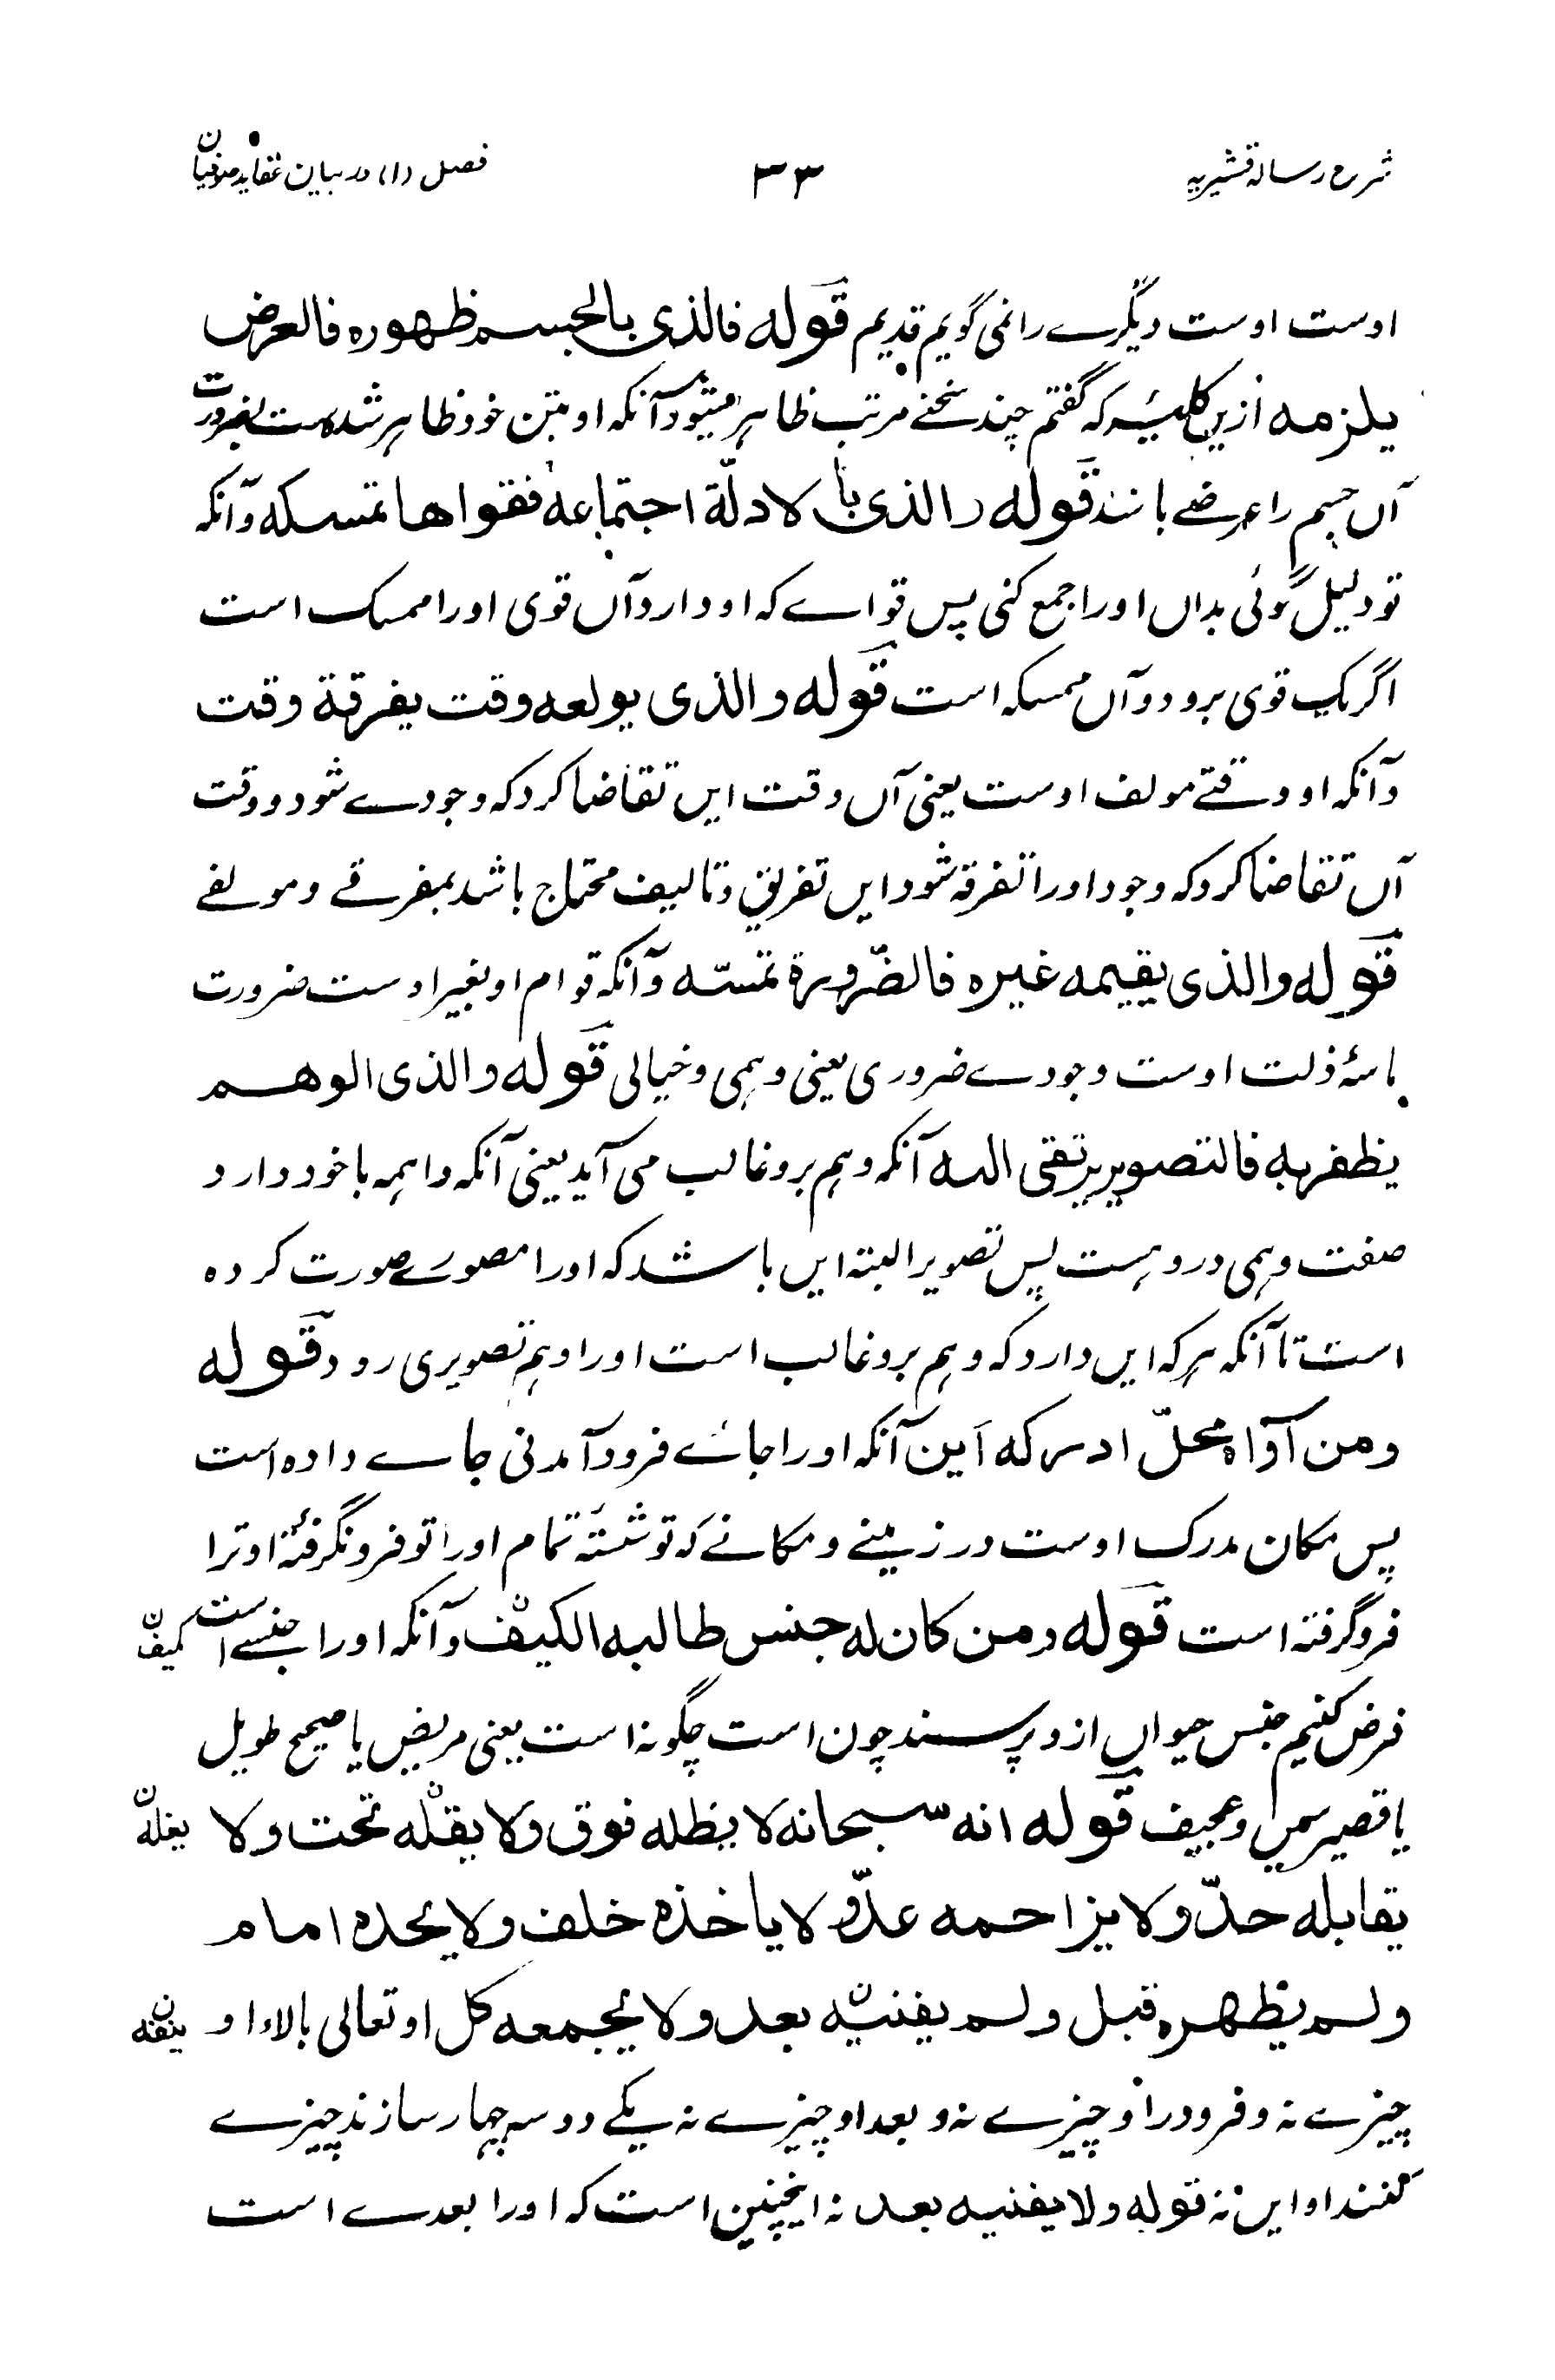 شرح رسالۂ قشیریہ
۳۳
فصل (۱) در بیان عقاید صوفیان
اوست اوست دیگرے را نمی گویم قدیم قوله فالذی بالجسم ظهوره فالعرض
یلزمه ازیں کلیہ کہ گفتم چند سخنے مرتب ظاہر میشود آنکہ او بتن خود ظاہر شدہ است بضرورت
آں جسم را عرضے باشد قوله والذی بالادلّة اجتماعه فقواها تمسکه وآنکہ
تو دلیل گوئی بداں او را جمع کنی پس قواے کہ او دارد آں قوی او را ممسک است
اگر یک قوی برود و آں ممسکہ است قوله والذی یولعه وقت یفرقة وقت
وآنکہ او وقتے مولف اوست یعنی آں وقت ایں تقاضا کرد کہ وجودے شود و وقت
آں تقاضا کرد کہ وجود او را تفرقہ شود ایں تفریق و تالیف محتاج باشد بمفرقے و مولفے
قوله والذی یقیمه غیره فالضّرورة تمسّه وآنکہ قوام او بغیر اوست ضرورت
ماسۂ ذلت اوست وجودے ضروری یعنی وہمی و خیالی قوله والذی الوهم
یظفر به فالتصویر یرتقی الیه آنکہ وہم برو غالب می آید یعنی آنکہ واہمہ با خود دارد
صفت وہمی درو ہست پس تصویر البتہ ایں باشد کہ او را مصورے صورت کردہ
است تا آنکہ ہر کہ ایں دارد کہ وہم برو غالب است او را وہم تصویری رود قوله
ومن آواه محلّ ادرکه این آنکہ او را جاے فرود آمدنی جاے دادہ است
پس مکان مدرک اوست در زمینے و مکانے کہ تو نشستۂ تمام او را تو فرو نگرفتۂ او ترا
فرو گرفتہ است قوله ومن کان له جنس طالبه الکیف وآنکہ او را جنسے است کیف ن
فرض کنیم جنس حیواں ازو پرسند چون است چگونہ است یعنی مریض یا صحیح طویل
یا قصیر سمین و عجیف قوله انه سبحانه لا یظله فوق ولا یقلّه تحت ولا یغلّه ن
یقابله حدّ ولا یزاحمه عدّ ولا یاخذه خلف ولا یحده امام
ولم یظهره قبل ولم یفنیه بعد ولا یجمعه کل او تعالی بالاء او ینفه ن
چیزے نہ و فرود را و چیزے نہ و بعد او چیزے نہ یکے دو سہ چہار سازند چیزے
کنند او ایں نہ قوله ولا یفنیه بعد نہ اینچنین است کہ او را بعدے است